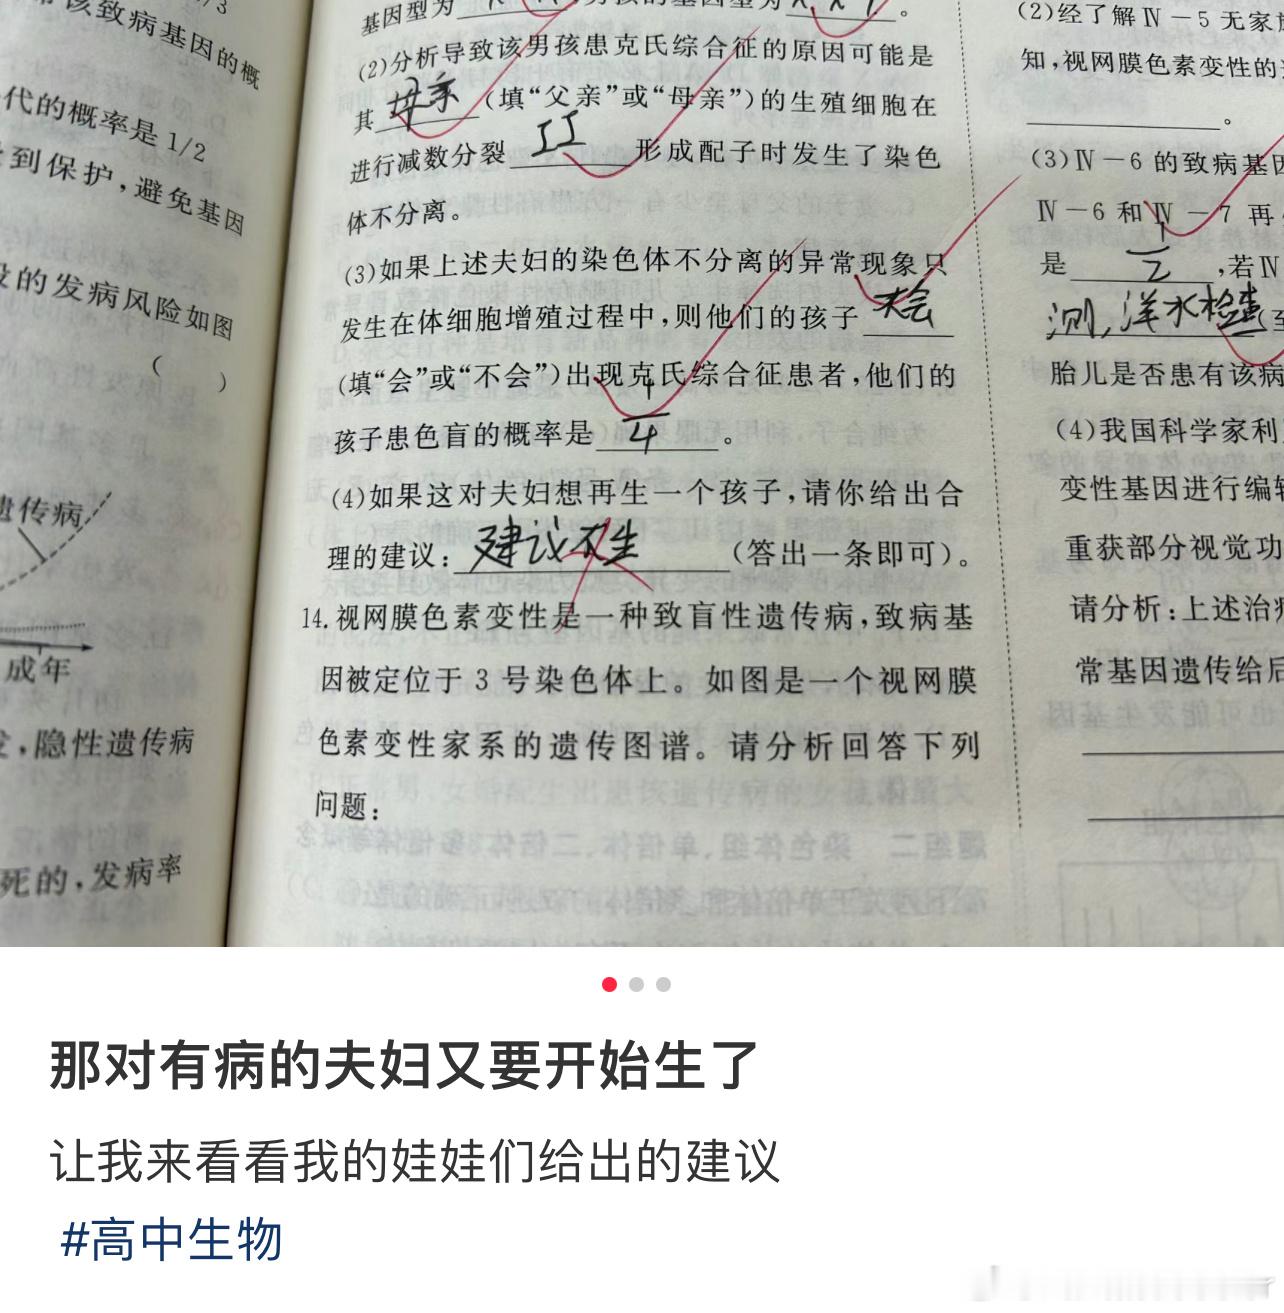 该致病基因的概
代的概率是 1/2
到保护,避免基因
的发病风险如图
(    )
遗传病
成年
,隐性遗传病
死的,发病率
基因型为
(2)分析导致该男孩患克氏综合征的原因可能是
其 母亲 (填“父亲”或“母亲”)的生殖细胞在
进行减数分裂 II 形成配子时发生了染色
体不分离。
(3)如果上述夫妇的染色体不分离的异常现象只
发生在体细胞增殖过程中,则他们的孩子 不会
(填“会”或“不会”)出现克氏综合征患者,他们的
孩子患色盲的概率是 1/4 。
(4)如果这对夫妇想再生一个孩子,请你给出合
理的建议: 建议不生 (答出一条即可)。
14. 视网膜色素变性是一种致盲性遗传病,致病基
因被定位于 3 号染色体上。如图是一个视网膜
色素变性家系的遗传图谱。请分析回答下列
问题:
(2)经了解Ⅳ－5 无家
知,视网膜色素变性的
。
(3)Ⅳ－6 的致病基因
Ⅳ－6 和Ⅳ－7 再
是 1/2 ,若Ⅳ
测,羊水检查
胎儿是否患有该病
(4)我国科学家利
变性基因进行编辑
重获部分视觉功
请分析:上述治
常基因遗传给后
那对有病的夫妇又要开始生了
让我来看看我的娃娃们给出的建议
#高中生物